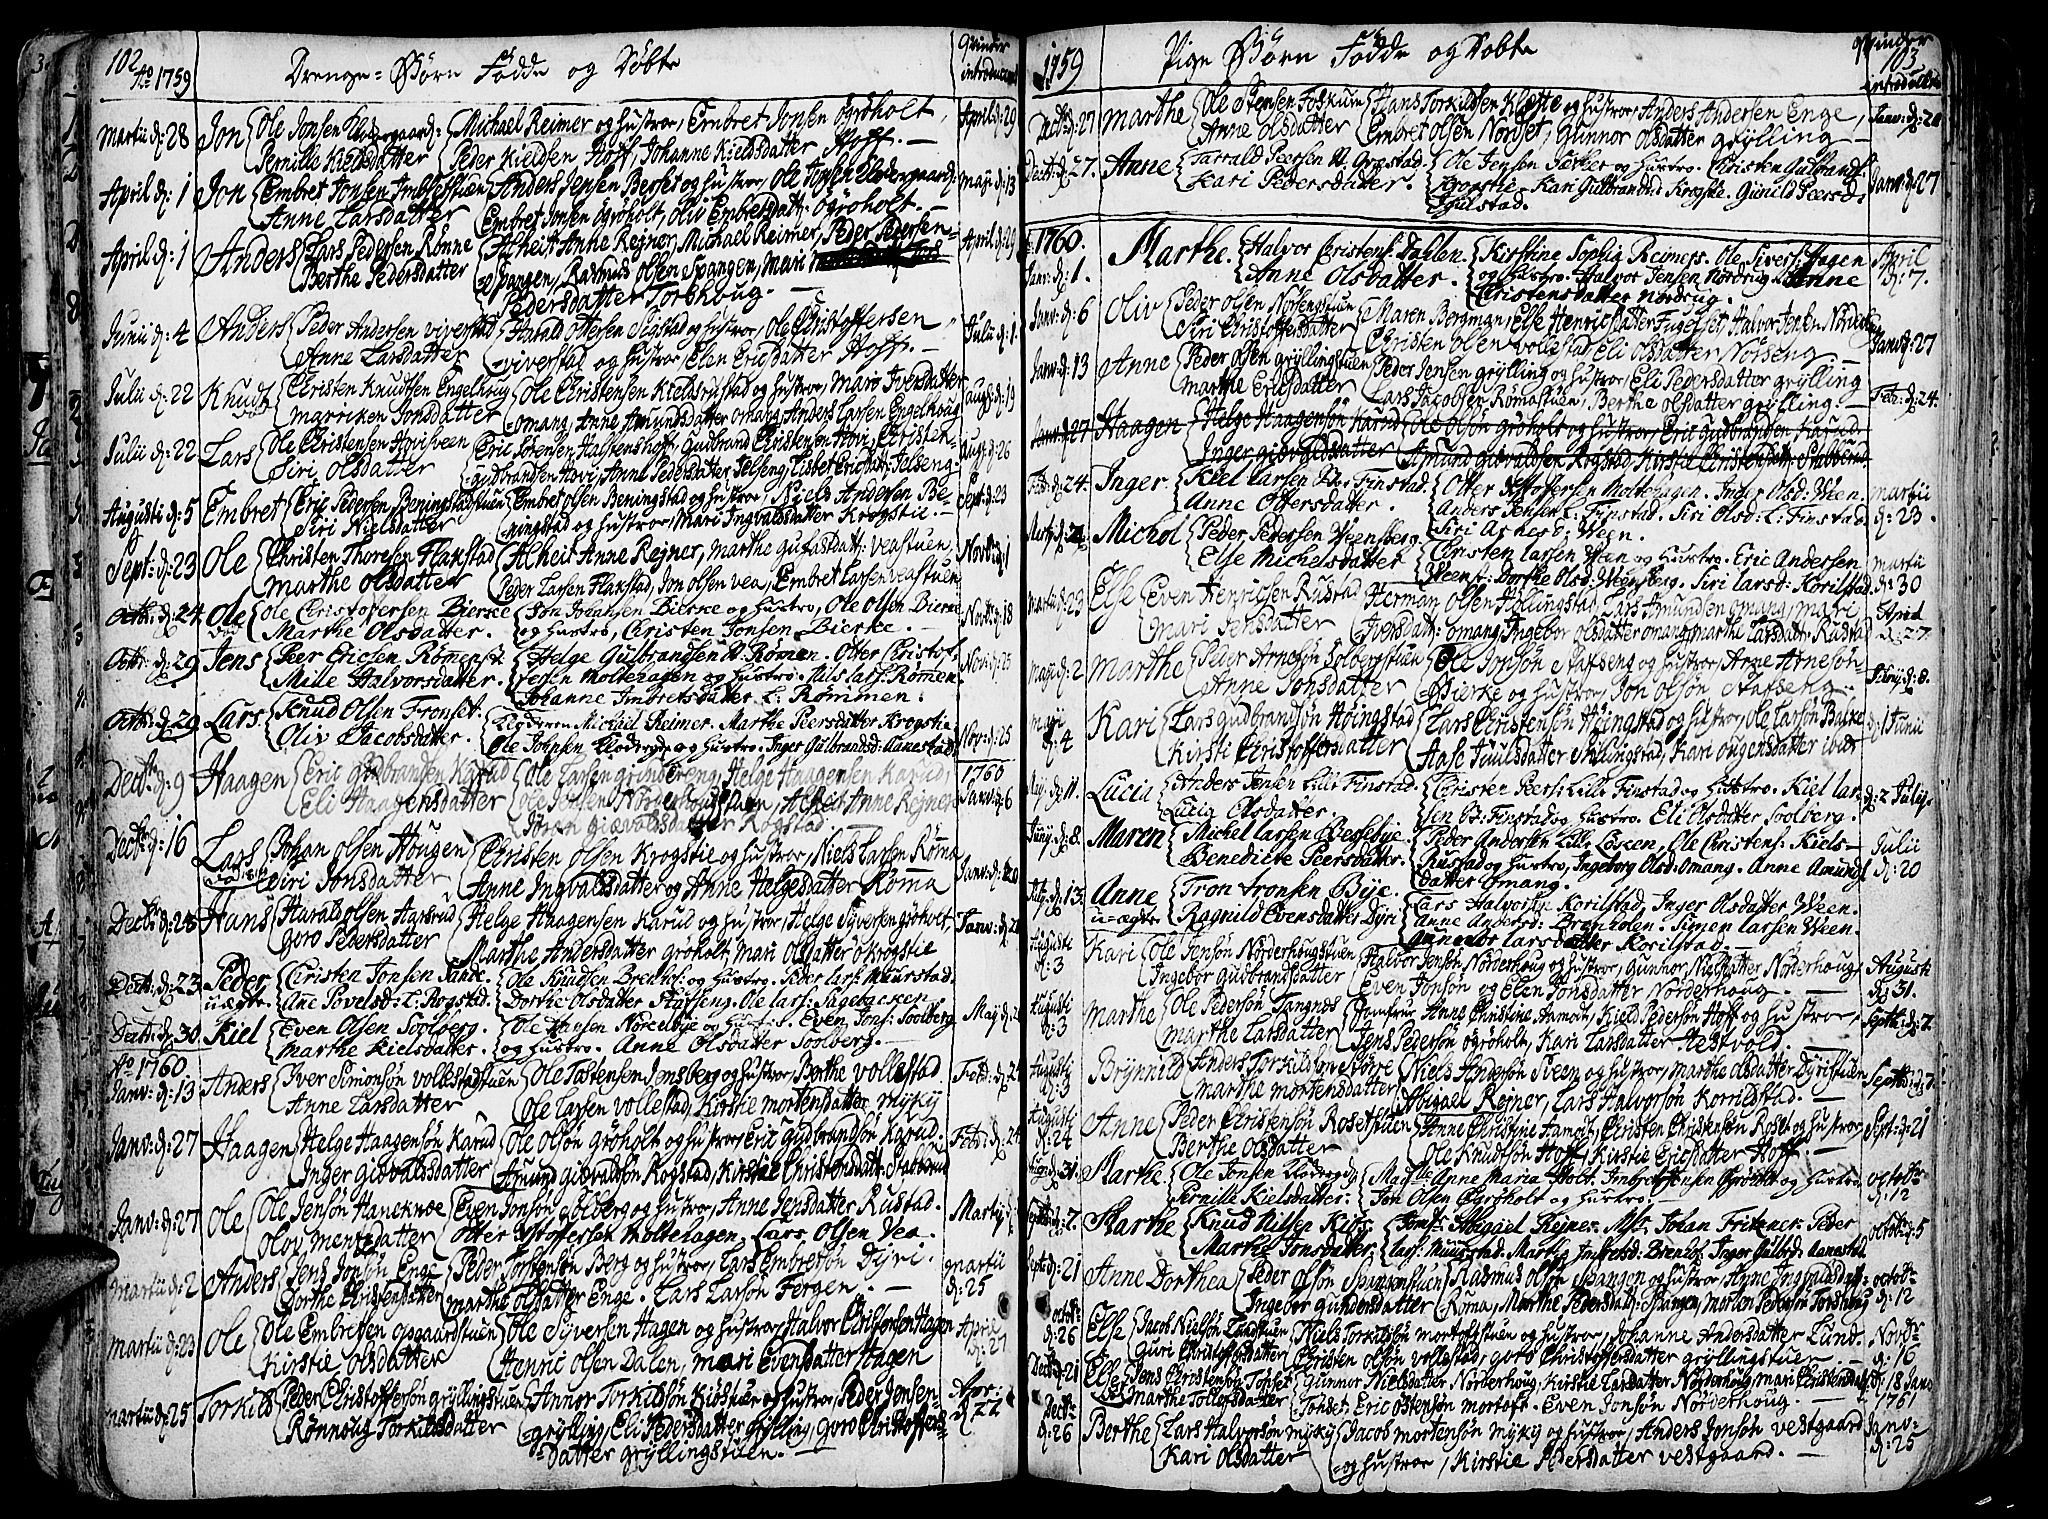 102
Ao 1759
Drenge-Børn Fødde og Døbte
Qvinder introducerede
Martii d: 28
Jon
Ole Jonsen
Pernille Kieldsdatter
Michael Reimer og hustroe, Embret Jonsen ögröholt,
Peder Kieldsen Hoff, Johanne Kieldsdatter Hoff.
April d: 29
April d: 1
Jon
Embret Jonsen
Anne Larsdatter
Anders Jensen Berset og hustroe, Ole Jonsen
Embret Jonsen ögröholt, Oliv Embretsdatt: ögröholt.
Maji d: 13
April d: 1
Anders
Lars Pedersen Rönne
Berthe Pedersdatter
Alheit Anne Rejner, Michael Reimer, Peder Pedersen
Spangen, Rasmus olsen Spangen, Mari
Pedersdatter Torshoug.
April d: 29
Junii d: 4
Anders
Peder Andersen viverstad
Anne Larsdatter
Harald ottersen Sigstad og hustroe, Ole Christoffersen
viverstad og hustroe, Elen Ericsdatter Hoff.
Julii d: 1
Julii d: 22
Knud
Christen Knudsen Engelhoug
Marriken Jonsdatter
Ole Christensen Kieldsrustad og hustroe, Mari Iversdatter
omang, Anne Amundsdatter omang, Anders Larsen Engelhoug
Aug: d: 19
Julii d: 22
Lars
Ole Christensen Hovisveen
Siri Olsdatter
Eric Sørensen Halstenshoff, Gudbrand Christensen Hovi, Christen
gudbrandsen Hovi, Anne Pedersdatter Jelseng, Lisbet Ericsdatt: Jelseng
Aug: d: 26
Augusti d: 5
Embret
Eric Pedersen Beningstadstuen
Siri Nielsdatter
Embret olsen Beningstad og hustroe, Niels Andersen Be-
ningstad og hustroe, Mari Ingvaldsdatter Krogstie.
Sept: d: 23
Sept: d: 23
Ole
Christen Thoresen Flakstad
Marthe Olsdatter
Alheit Anne Rejner, Marthe gulasdatt: veastuen
Peder Larsen Flakstad, Jon olsen vea, Embret Larsen veastuen
Nov: d: 1
Octb: d: 24
Ole
Ole Christophersen Bierke
Marthe Olsdatter.
Jon Johansen Bierke og hustro, Ole Olsen Bierke
og hustro, Christen Jonsen Bierke.
Nov: d: 18
Octb: d: 29
Jens
Peer Ericsen Römenst
Mille Halvorsdatter.
Helge Gulbrandsen N: Römen. Otter Christof-
fersen Moltehagen og hustroe. Nils Lars: Römen.
Johanne Imbretsdatter L: Römmen.
Nov: d: 25
Octb: d: 29
Lars
Knud Olsen Fronset.
Oliv Jacobsdatter.
Michael Reimer. Marthe Peersdatter Krogstie
Ole Johnsen og hustroe. Inger Gulbrandsd: Aanestad
Nov: d: 25
Decb: d: 9
Haagen
Eric gudbrandsen Karud
Eli Haagensdatter
Ole Larsen grinbereng, Helge Haagensen Karud,
Ole Jensen Norderhougstuen, Alheit Anne Rejner
Jöran giævaldsdatter Rogstad
1760
Janv: d: 6
Decb: d: 16
Lars
Johan olsen Hougen
Siri Jonsdatter
Christen Olsen Krogstie og hustroe, Niels Larsen Röma
Anne Ingvaldsdatter og Anne Helgesdatter Röma
Janv: d: 20
Decb: d: 23
Hans
Harald olsen Aasrud
goro Pedersdatter
Helge Haagensen Karud og hustroe, Helge Syversen gröholt,
Marthe Andersdatter gröholt, Mari Olsdatter Krogstie
Janv: d: 2
Decb: d: 23
Peder
uægte
Christen Jonsen
Ane Povelsd: L: Rogstad.
Ole Knudsen Brenhof: og hustroe. Peder Lars: Muurstad.
Dorthe Olsdatter Stafseng. Ole Lars: Sagebacken
Decb: d: 30
Kiel
Even Olsen Soolberg.
Marthe Kielsdatter.
Ole Hansen Norenbye og H: Even Jons: Soolberg
og hustroe. Anne Olsdatter Soolberg.
Maj d: 2
Ao 1760
Janv: d: 13
Anders
Iver Simonsøn vollestadstuen
Anne Larsdatter
Ole Tostensen Jensberg og hustroe, Berthe vollestad
Ole Larsen vollestad, Kirstie Mortensdatter Myky
Feb: d: 2
Janv: d: 27
Haagen
Helge Haagensøn Karud
Inger Giævaldsdatter
Ole olsøn gröholt og hustroe, Eric Gudbrandsøn Karud
Amund giævaldsøn Rogstad, Kirstie Christensdatt: Stabberud
Feb: d: 24
Janv: d: 27
Ole
Ole Jensøn Haneknæ
Olov Mentzdatter
Even Jonsøn Solberg og hustroe, Anne Jensdatter Rustad.
Otter Christoffersen Moltehagen, Lars Olsen Vea.
Martij
Martii d: 2
Anders
Jens Jonsøn Enge
Dorthe Christensdatter
Peder Torstensøn Berg og hustroe, Lars Embretsøn Dyri,
Marthe olsdatter Enge, Lars Larsøn Fergen.
Martii d: 25
Martii d: 23
Ole
Ole Embretsen opsgaardstuen
Kirstie Olsdatter
Ole Syversen Hagen og hustroe, Halvor Christensen Hagen
Henric olsen Dalen, Mari Evensdatter Hagen
April d: 27
Martii d: 25
Torkild
Peder Christoffersøn gryllingstuen
Rönnoug Torkildsdatter
Gunner Torkildsøn og hustroe, Peder Jensen
grylling, Eli Pedersdatter grylling, Goro Christoffers
datter gryllingstuen.
Apr: d: 22
1759
Pige Børn Fødde og Døbte
Qvinder
103
introduc
Decb: d: 27
Marthe
Ole Stensen Foskum
Anne olsdatter
Hans Torkildsen Klefte og hustroe, Anders Andersen Enge,
Embret olsen Nonset, Gunnor olsdatter grylling
Janv: d: 20
Decb: d: 27.
Anne
Tarrald Peersen N. Grøstad
Kari Pedersdatter.
Ole Jensen og hustro. Christen Gulbrands:
Krogstie. Kari Gulbrandsd Krogstie. Gunild Peersd:
Igulstad.
Janv: d: 27
1760.
Janv: d: 1.
Marthe
Halvor Christens: Dahlen
Anne Olsdatter.
Kirstine Sophia Reimers. Ole Sivers: Hagen
og hustro. Halvor Jensen Nordrug. Anne
Christensdatter Nordrug.
April d: 7.
Janv: d: 6
Oliv
Peder Olsen Norsengstuen
Siri Christoffersdatter
Maren Bergman, Else Henricsdatter Fugelset, Halvor Jensen
Christen olsen vollestad, Eli olsdatter Norseng
Janv: d: 27
Janv: d: 13
Anne
Peder olsen gryllingstuen
Marthe Ericsdatter
Peder Jensen grylling og hustroe, Eli Pedersdatter grylling
Lars Jacobsen Römastuen, Berthe olsdatter grylling.
Feb: d: 24.
Janv: d: 27
Haagen
Helge Haagensøn Karud
Inger giævaldsdatter
Ole olsøn gröholt og hustroe, Eric Gudbrandsen Karud
Amund giævaldsen Rogstad, Kirstie Christensdatt: Stabberud
Feb: d: 24.
Inger
Kiel Larsen St: Finstad.
Anne Ottersdatter.
Otter Moltehagen. Inger Olsd: Ween.
Anders Jensen L: Finstad. Siri Olsd: L: Finstad
Siri Arnesd: Ween.
Martii d: 23.
Martij d: 2
Michol
Peder Pedersen Weensberg.
Else Michelsdatter
Christen Larsen Ween og hustro. Eric Andersen
Weens: Dorthe Olsd: Weensberg. Siri Larsd: Korilstad
Martii d: 30
Martii d: 29
Else
Even Henricsen Rustad
Mari Jensdatter
Herman Olsen Hollingstad, Lars Amundsen omang, Mari
Iversdatt: omang, Ingebor olsdatter omang, Marthe Larsdatt: Rustad
April d: 27
Maji d: 2
Marthe
Peder Arnesøn Solbergstuen
Anne Jonsdatter
Ole Jonsøn Stafseng og hustroe, Arne Arnesøn
Bierke og hustroe, Jon olsøn Stafseng.
Junij d: 8.
Maji d: 4
Kari
Lars Gudbrandsøn Höingstad
Kirstie Christoffersdatter
Lars Christensøn Höingstad og hustroe, Ole Larsøn Balke
Aase Juulsdatter, Kari ougensdatter ibid:
d: 1 Junii
Maj: d: 11.
Lucia
Anders Jensen Lille Finstad.
Lucia Olsdatter.
Christen Peers: Lille Finstad og hustro. Kiel Lar-
sen St: Finstad og hustroe. Eli Olsdatter Soolberg.
d: 2 Julij
Junij d: 8.
Maren
Michel Larsen Bessebye
Benedicte Peersdatter.
Peder Andersen Lille Løseen, Ole Christens: Kiels-
rustad og hustroe, Ingeborg Olsd: Omang. Anne Amunds
datter Omang.
Julii d: 20
Julij d: 13.
Anne
u-ægte
Tron Tronsen Bye.
Ragnild Evensdatter Dyri
Lars Halvorsen Korilstad. Inger Olsdatter Ween.
Anne Andersd: Brenholen. Simen Larsen Ween.
Gunnor Larsdatter Korilstad.
Augusti d: 3
Kari
Ole Jensøn Norderhougstuen
Ingebor Gudbrandsdatter
Halvor Jensøn Norderhoug og hustroe, Gunnor Nielsdatter Norderhoug,
Even Jonsøn og Elen Jonsdatter Norderhoug.
Augusti d: 31.
Augusti d: 3
Marthe
Ole Pedersøn Tangnes
Marthe Larsdatter
Jomfrue Anne Christine Aamodt, Kield Pedersøn Hoff og hustroe,
Jens Pedersøn ögröholt, Kari Larsdatter
Septb: d: 7.
Augusti d: 3
Brynnild
Anders Torkildsøn Större
Marthe Mortensdatter
Niels Andersøn Sveen og hustroe, Marthe olsdatter Dyristuen
Abigael Rejner, Lars Halvorsøn Korrildstad.
Septb: d: 7.
Augusti d: 24
Anne
Peder Christensøn Rosetstuen
Berthe Olsdatter
Anne Christine Aamodt, Christen Christensen Roset og hustroe
Ole Knudsøn Hoff, Kirstie Ericsdatter Hoff.
Sept: d: 21
Aug: d: 31.
Marthe
Ole Jonsen
Pernille Kielsdatter:
Mad:lle Anne Maria Holst. Imbret Jonsen Ögröholt og hustro.
Jon Olsen Ögröholt og hustroe.
Octobr d: 12
Septb: d: 7.
Marthe
Knud Nilsen
Marthe Jonsdatter.
Jomf: Abigael Rejner. Msr. Johan Fritzner. Peder
Lars: Muurstad. Marthe Imbretsd: Brenhof: Inger Gulbrd: Aanestad
Octobr: d: 5
Sept: d: 21
Anne Dorthea
Peder Olsøn Spangenstuen
Ingebor Gundersdatter
Rasmus olsøn Spangen og hustroe, Anne Ingvaldsdatt:
Röma, Marthe Pedersdatt: Spangen, Morten Pedersøn Torshoug
Octob: d: 12
Octob: d: 26
Else
Jacob Nielsøn Lundstuen
Guri Christoffersdatter
Niels Torkildsøn Mortoftstuen og hustroe, Johanne Andersdatter Lund.
Christen olsøn vollestad, goro Christoffersdatter gryllingstue.
Nov: d: 16
Decb: d: 21
Else
Jens Christensøn
Marthe Tollefsdatter
Gunnor Nielsdatter Norderhoug, Kirstie Larsdatter Norderhoug, Mari
Eric ostensøn Mortoft. Even Jonsøn Norderhoug.
d: 18 Janv 1761
Decb: d: 26
Berthe
Lars Halvorsøn Myky
Kari Olsdatter
Jacob Mortensøn Myky og hustroe, Anders Jonsøn Vestgaard
og hustroe, Kirstie Pedersdatter Vestgaard.
Janv: d: 25